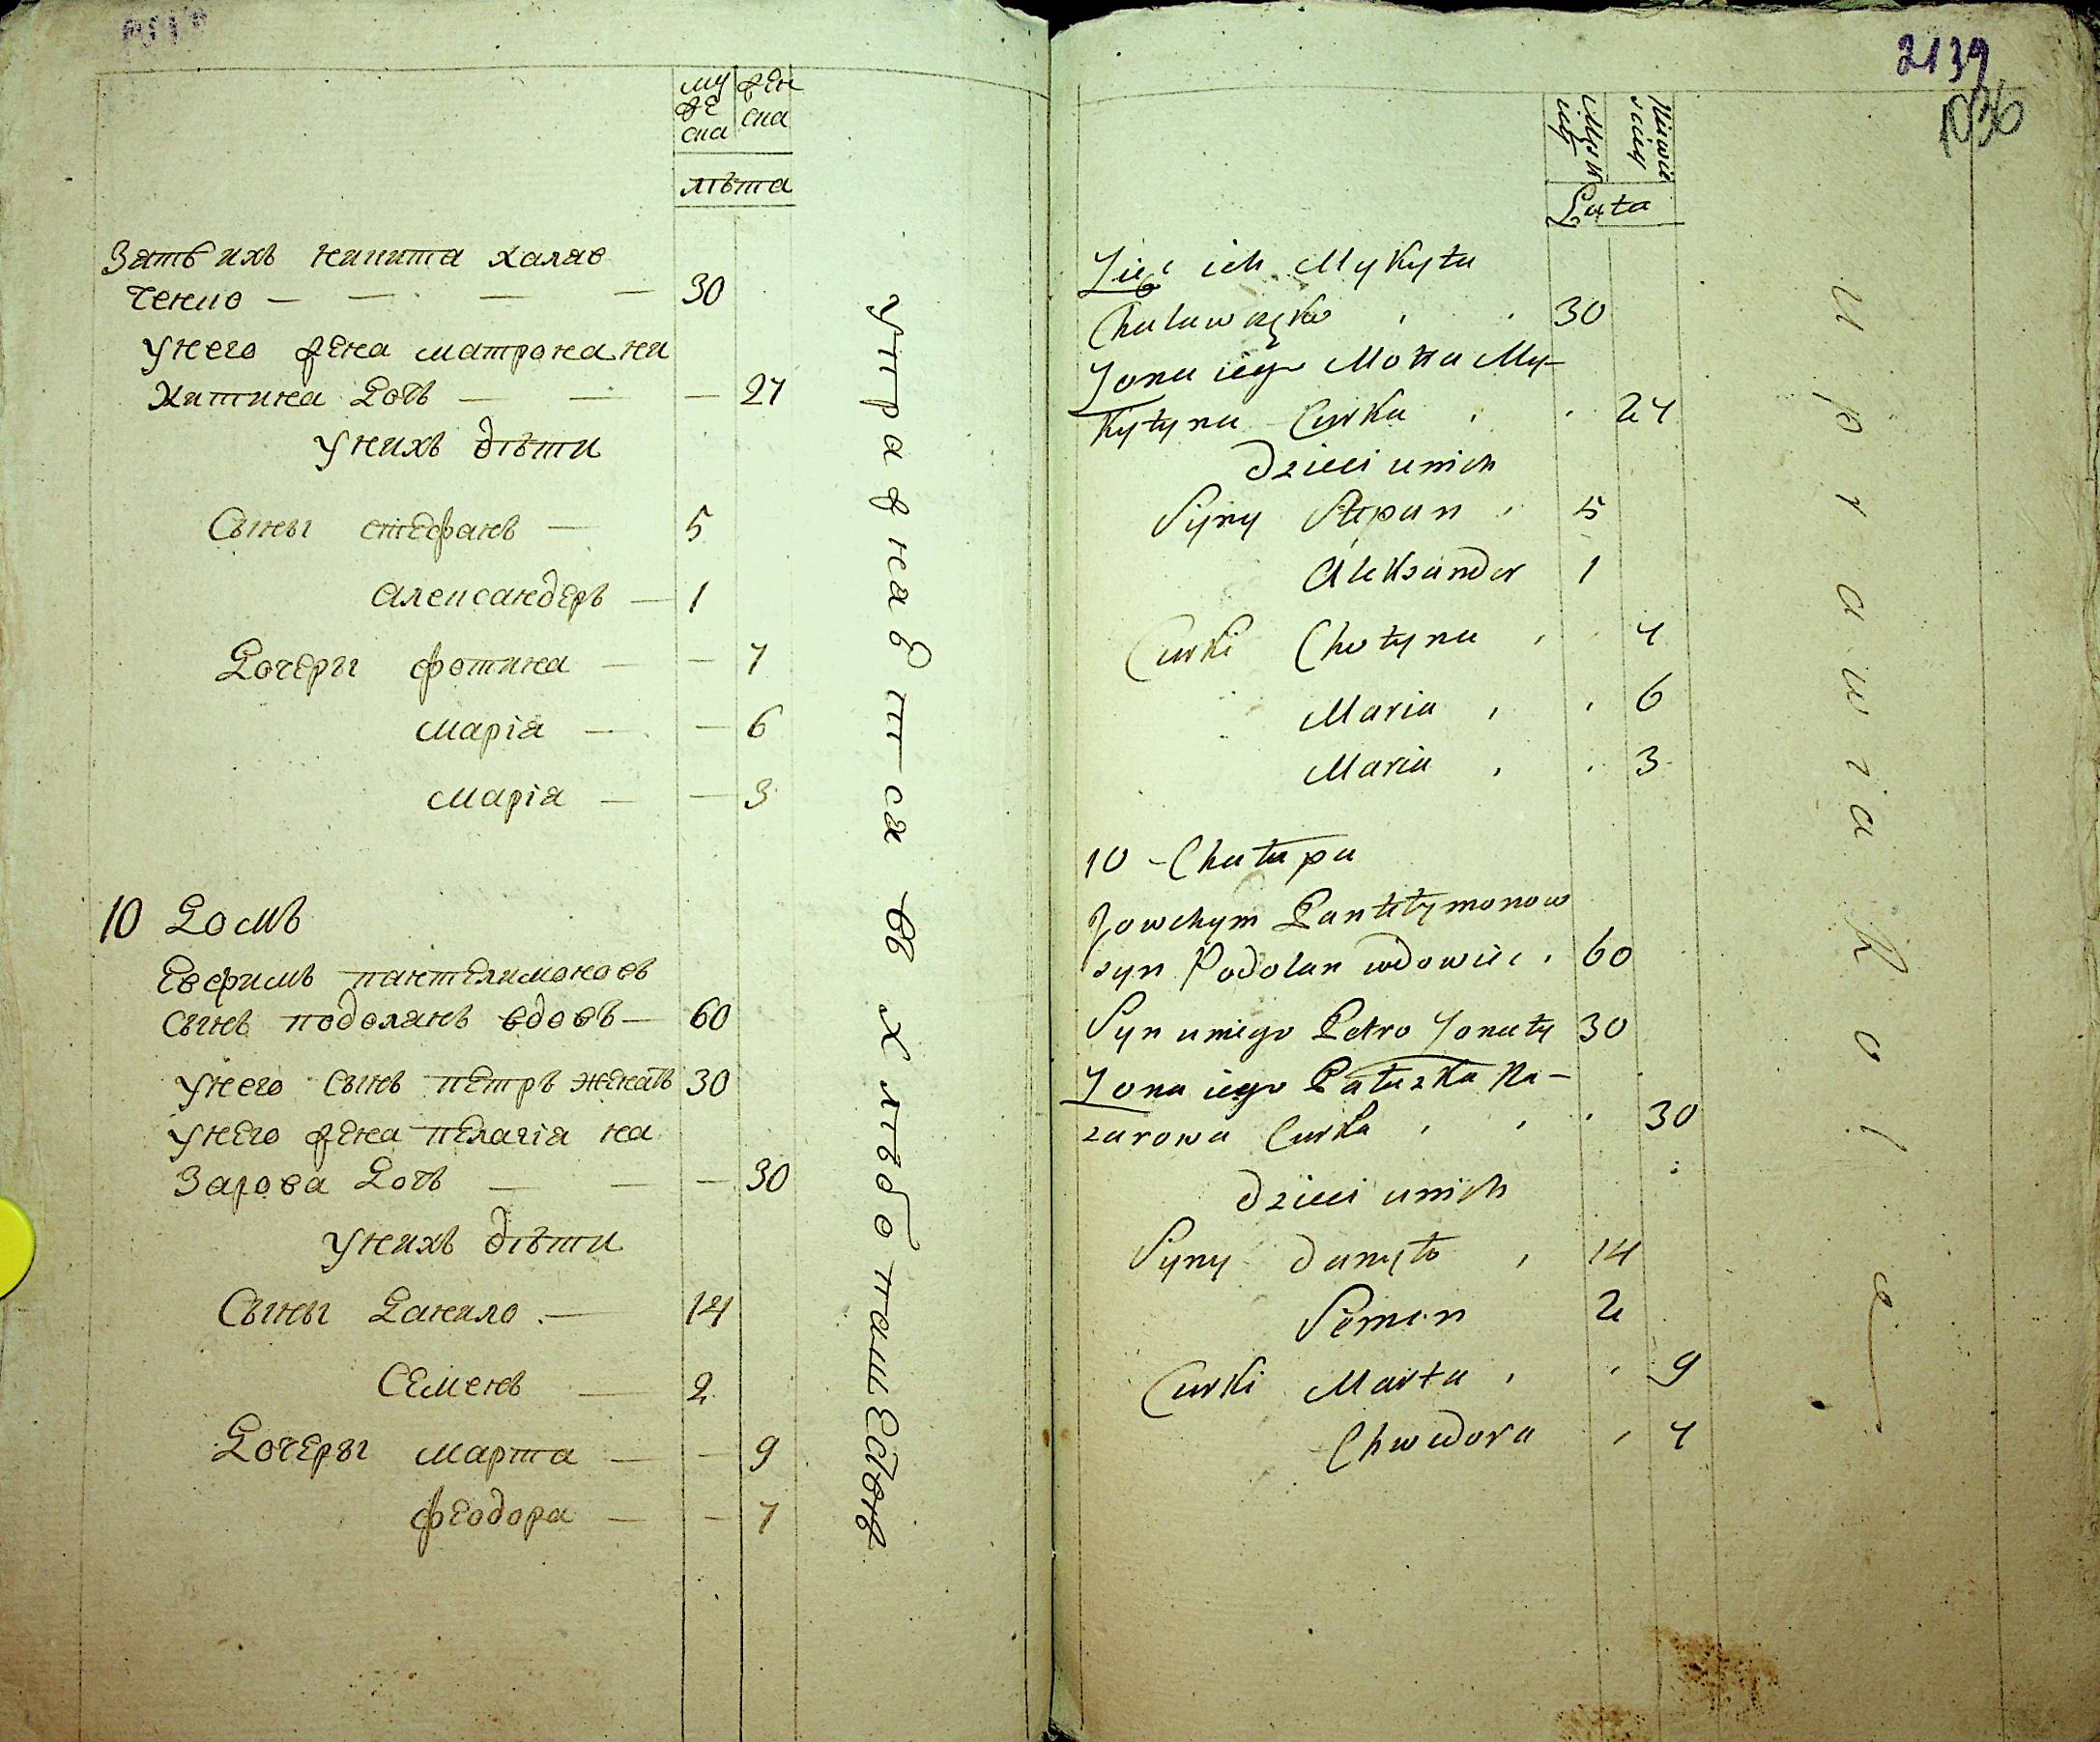 муже
ска
жен
ска
лѣта
Зять ихъ никита халяв
ченко — — — — 30
унего жена матрона ни
китина Дочь — — — 24
унихъ дѣти
Сыны стефанъ — 5
Александеръ — 1
Дочеры фотина — — 4
марія — — 6
марія — — 3
10 Домъ
Евфимъ пантелимоновъ
сынъ подолянъ вдовъ — 60
унего сынъ петръ женатъ 30
унего жена пелагія на
Зарова Дочь — — — 30
унихъ дѣти
Сыны Данило — 14
Семенъ — 2
Дочеры марта — — 9
феодора — — 4
упражнявтся въ хлѣбопашествѣ
2139
1036
Lata
Zięć ich Mykyta
Chalawczęko 30
Zona iego Motra My-
kytyna Curka 24
Dzieci unich
Syny Stepan 5
Aleksander 1
Curki Chotyna 4
Maria 6
Maria 3
10 - Chatupa
Jowchym Pantełymonow
syn Podolan wdowiec 60
Syn uniego Petro Zonaty 30
Zona iego Pałazka Na-
zarowa Curka 30
Dzieci unich
Syny Danyło 14
Semen 2
Curki Marta 9
Chwedora 4
uprawia Role